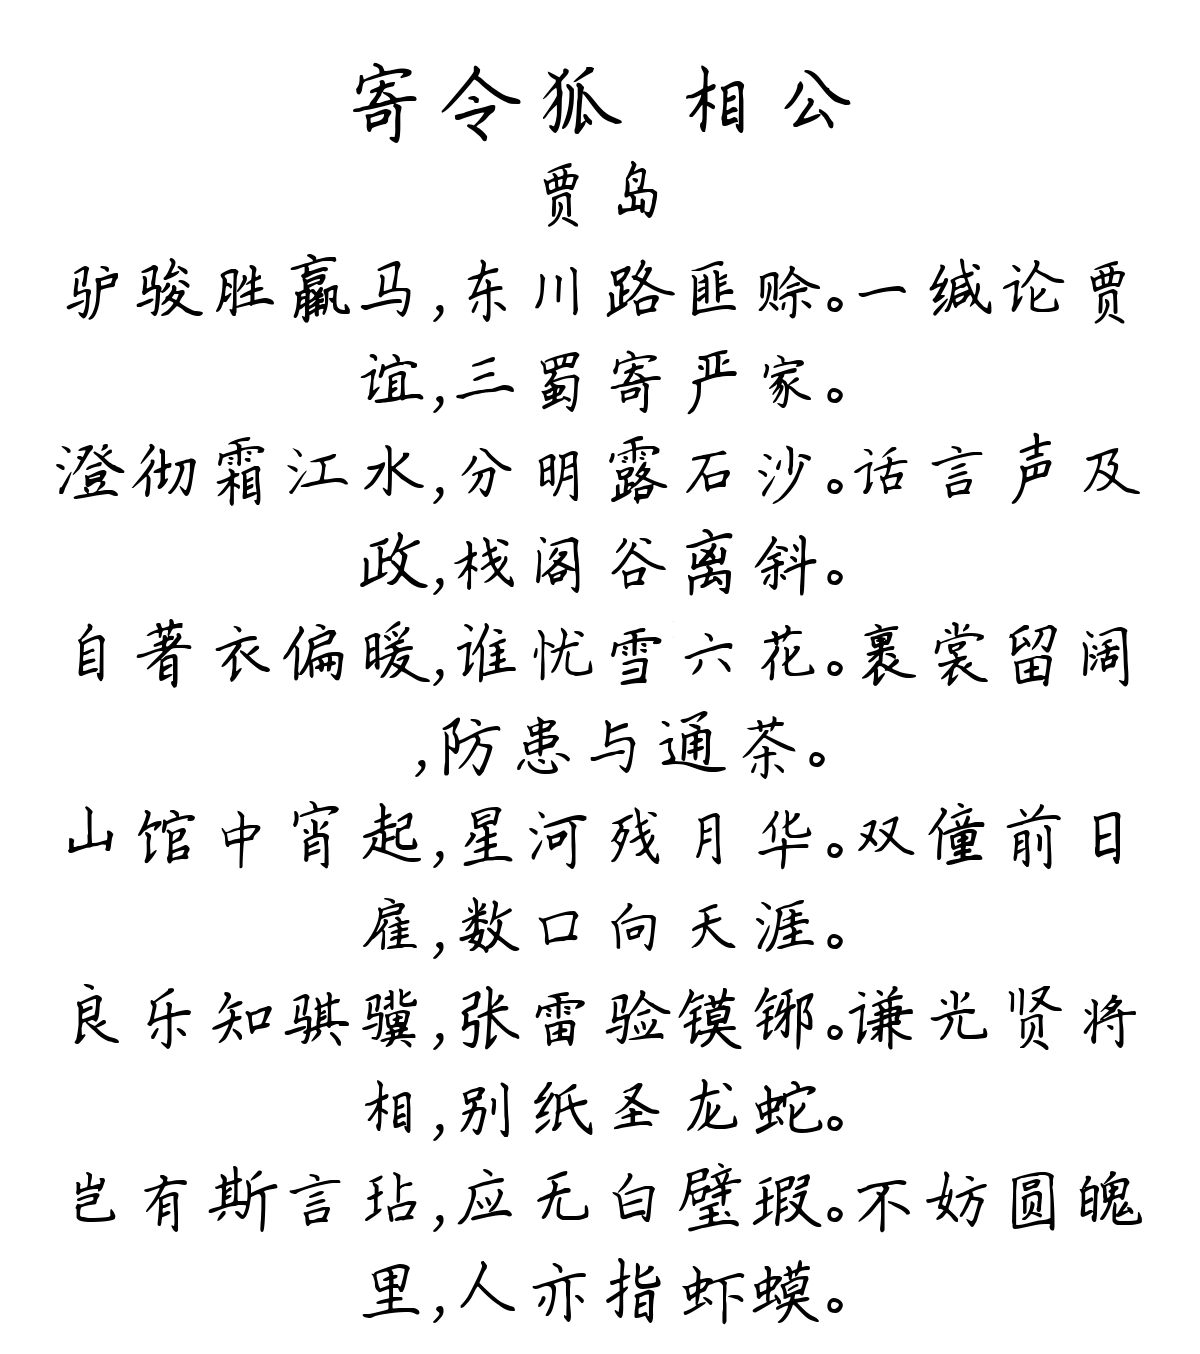 寄令狐 相公
贾岛
驴骏胜羸马,东川路匪赊。一缄论贾
谊,三蜀寄严家。
澄彻霜江水,分明露石沙。话言声及
政,栈阁谷离斜。
自著衣偏暖,谁忧雪六花。裹裳留阔
,防患与通茶。
山馆中宵起,星河残月华。双僮前日
雇,数口向天涯。
良乐知骐骥,张雷验镆铘。谦光贤将
相,别纸圣龙蛇。
岂有斯言玷,应无白璧瑕。不妨圆魄
里,人亦指虾蟆。